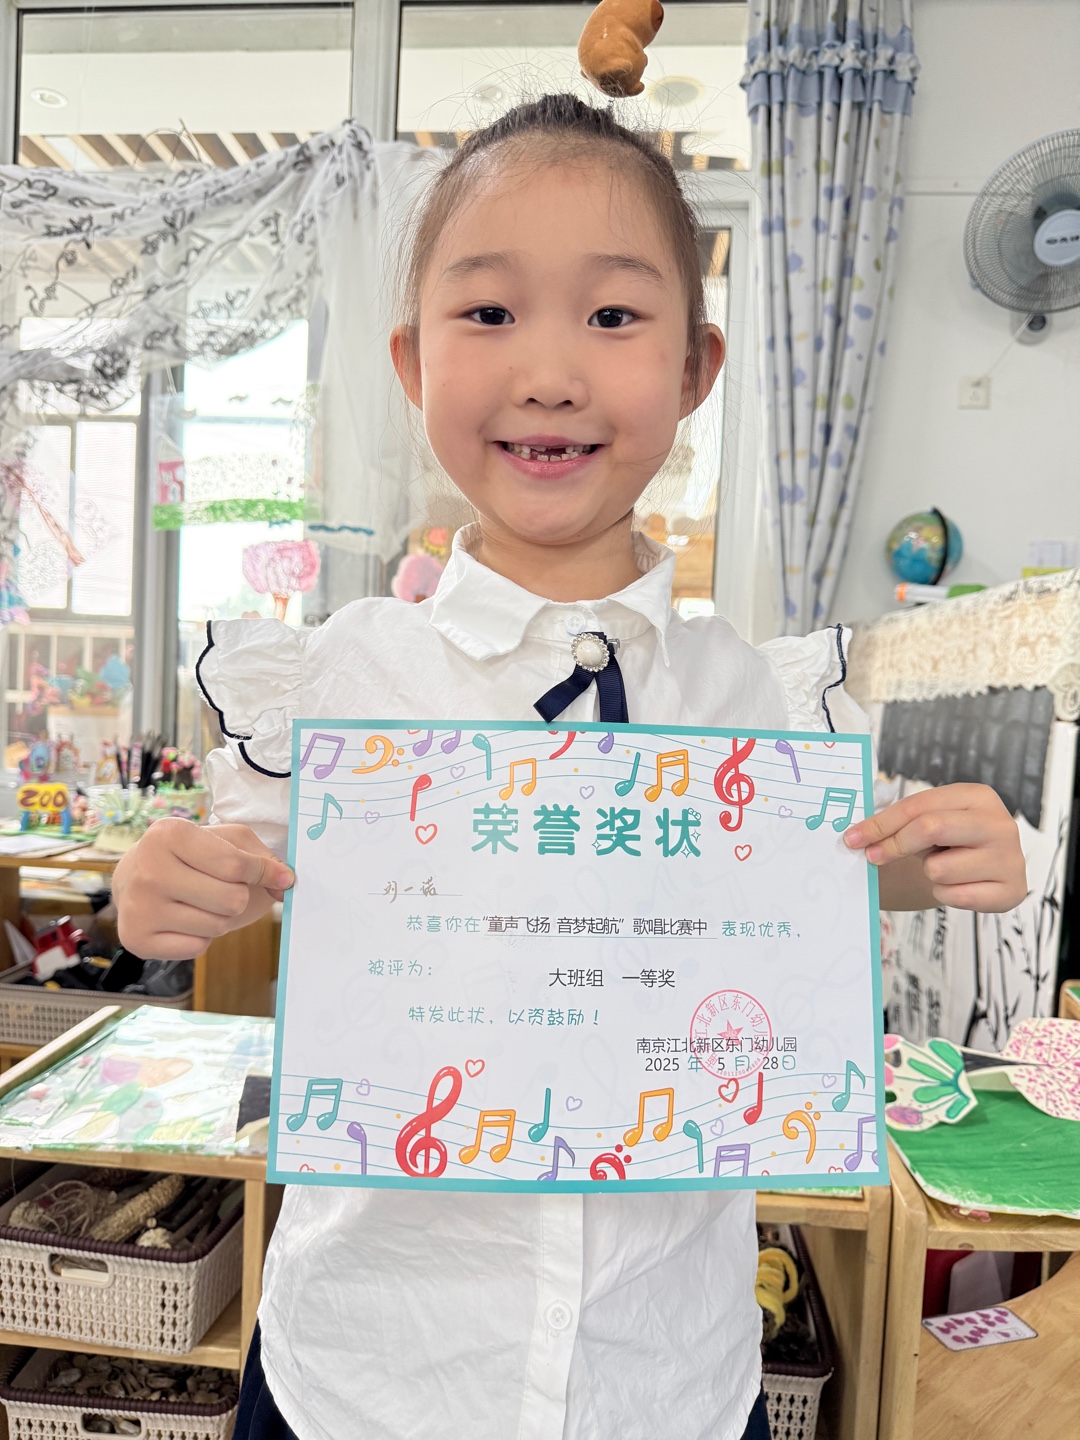 ZOO
荣誉奖状
刘一诺
恭喜你在“童声飞扬 音梦起航”歌唱比赛中 表现优秀，
被评为： 大班组 一等奖
特发此状，以资鼓励！
南京江北新区东门幼儿园
2025 年 5 月 28日